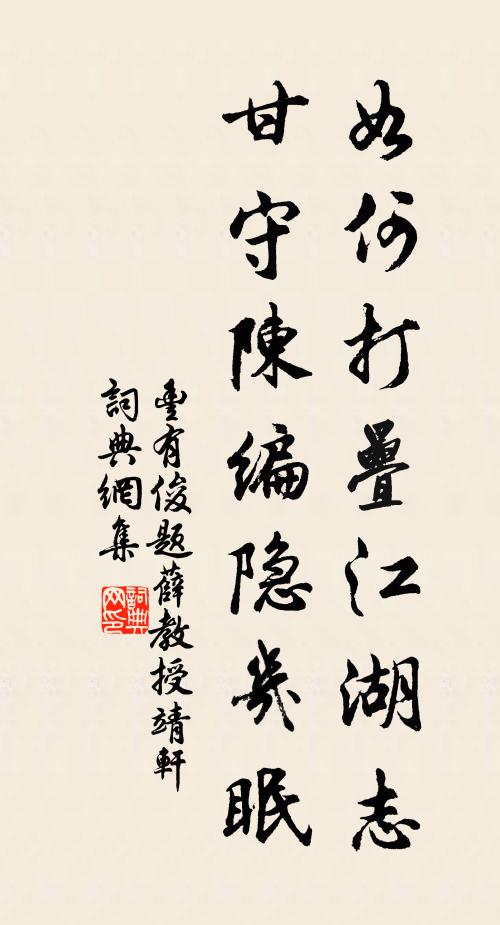 如何打疊江湖志
甘守陳編隐幾眠
豐有俊題薛教授靖軒
詞典網集
詞典
网印